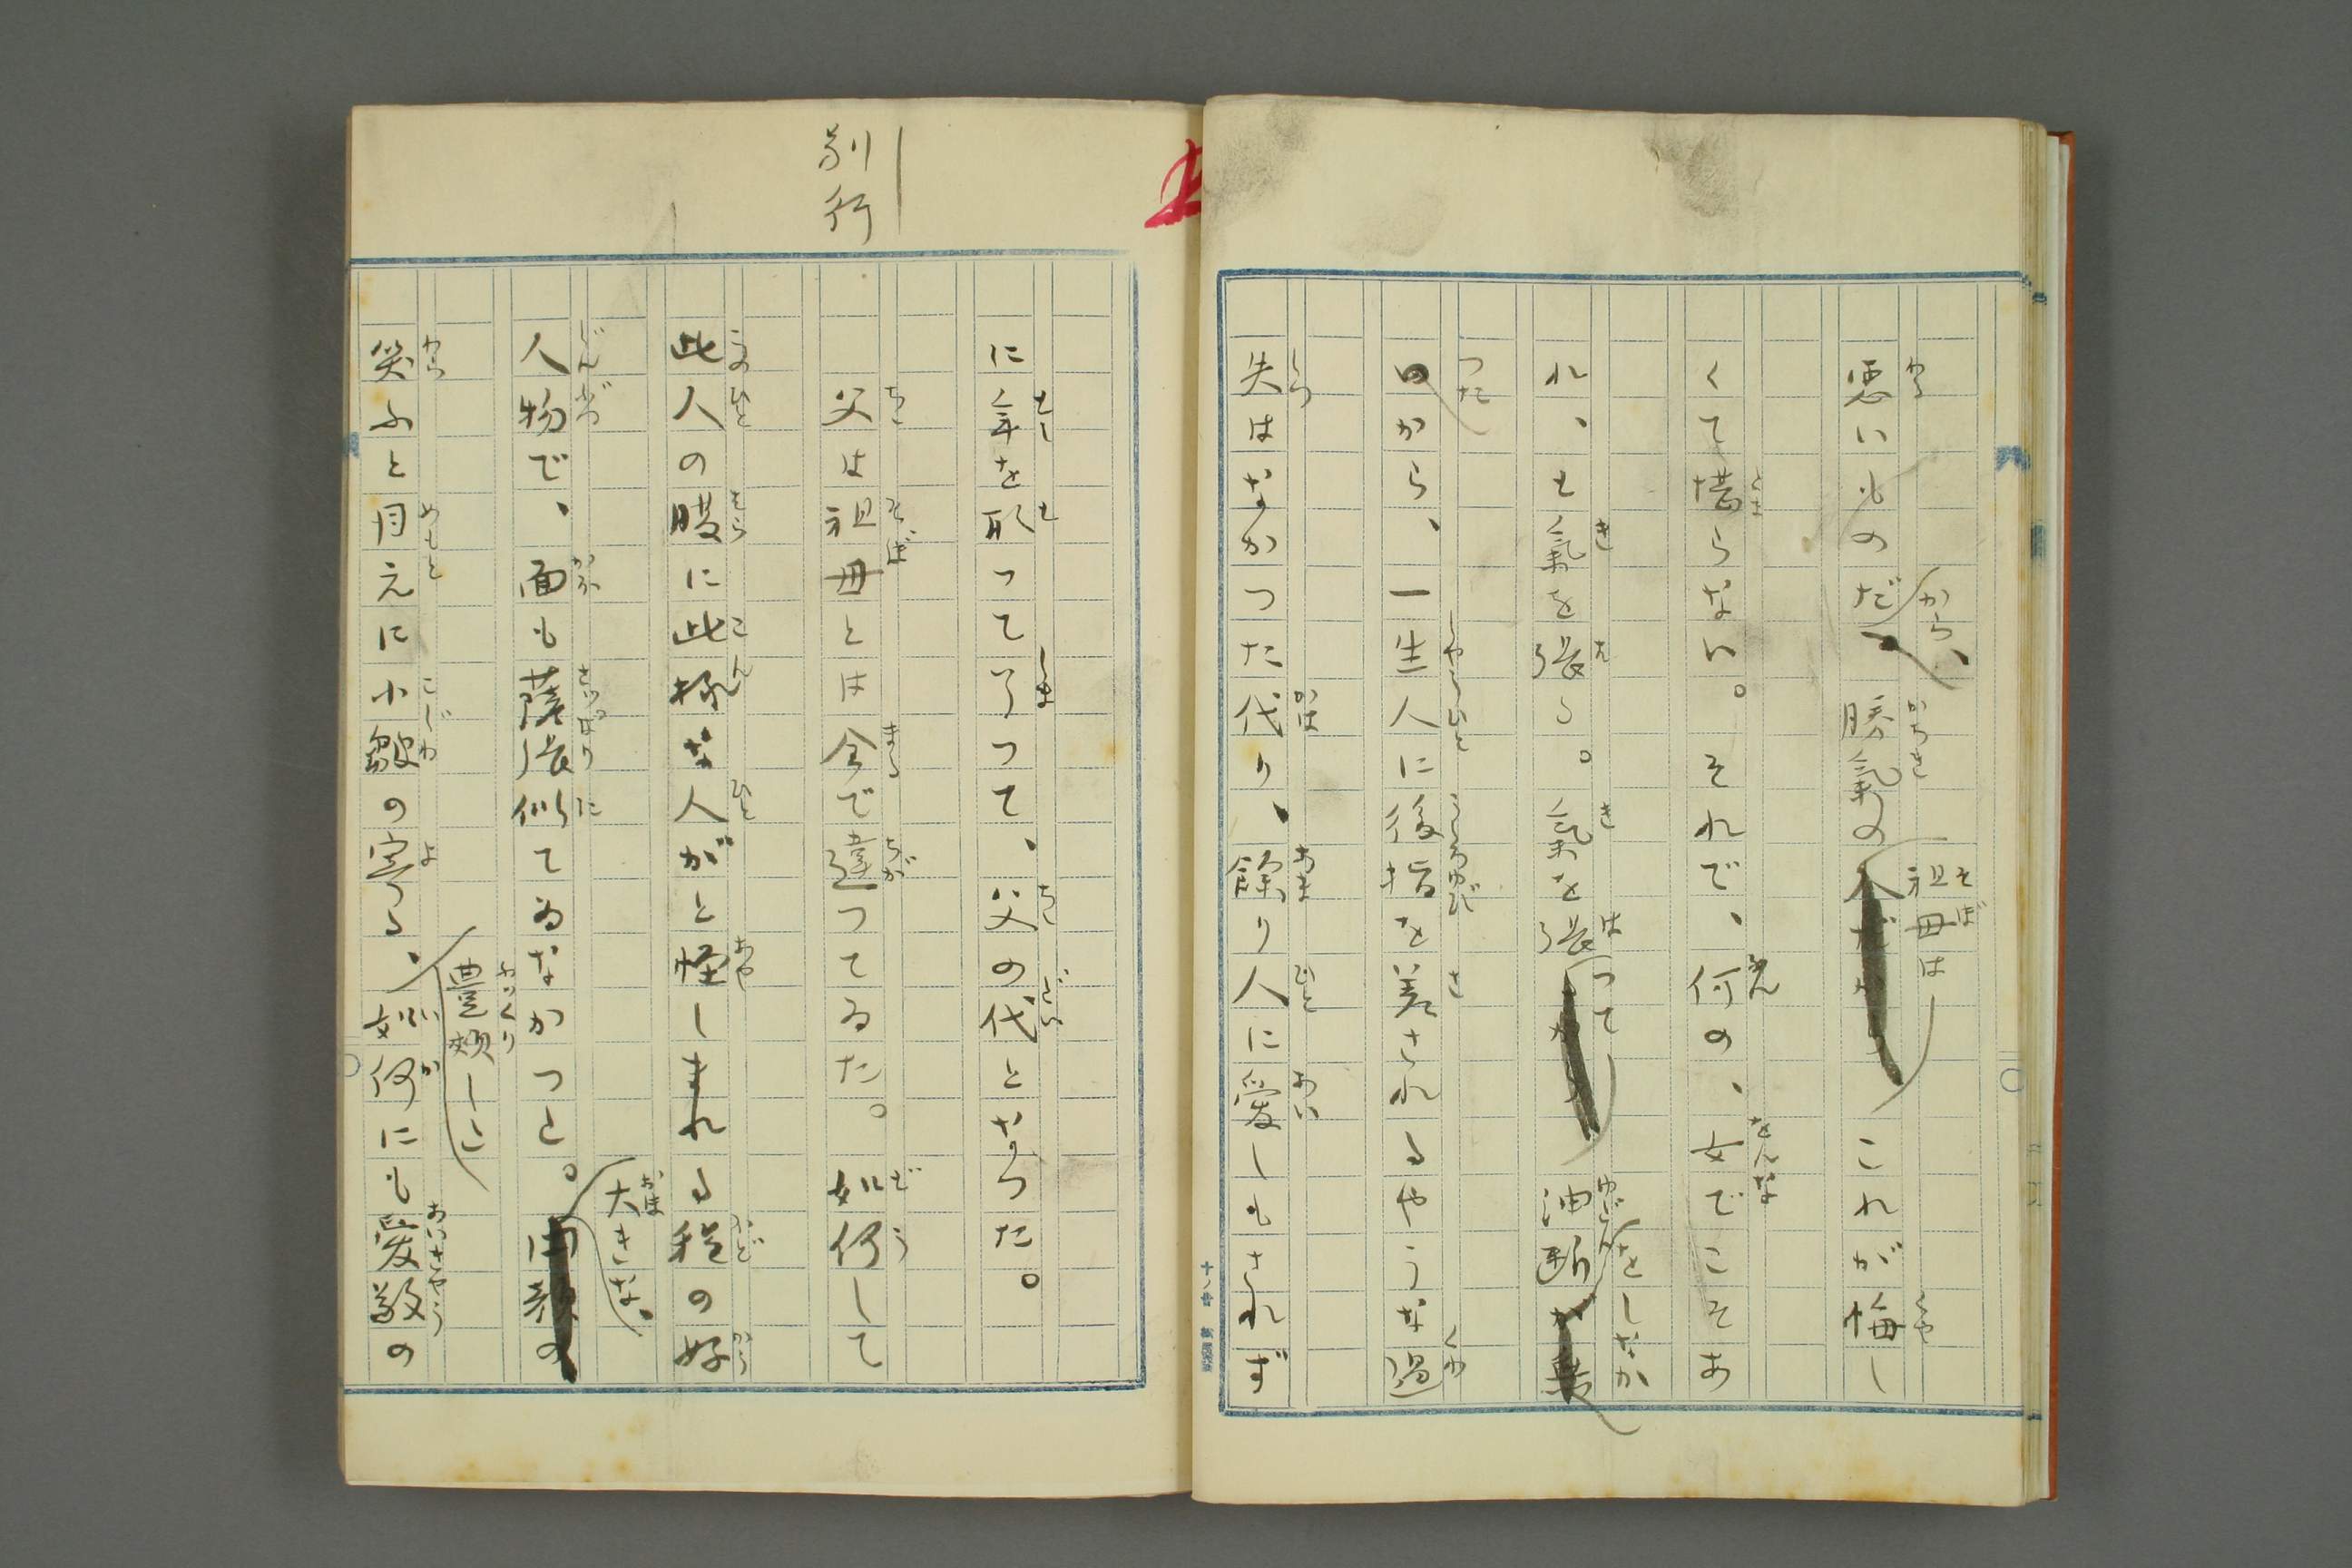 悪いものだから、勝氣の祖母はこれが悔し
くて堪らない。それで、何の、女でこそあ
れ、と氣を張る。氣を張つて油断をしなか
つたから、一生人に後指を差されるやうな過
失はなかつた代り、餘り人に愛しもされず
に年を取つて了つて、父の代となつた。
別行
父は祖母とは全で違つてゐた。如何して
此人の腹に此様な人がと怪しまれる程の好
人物で、面も薩張似てゐなかつた。大きな、
笑ふと目元に小皺の寄る、豊頬した如何にも愛敬の